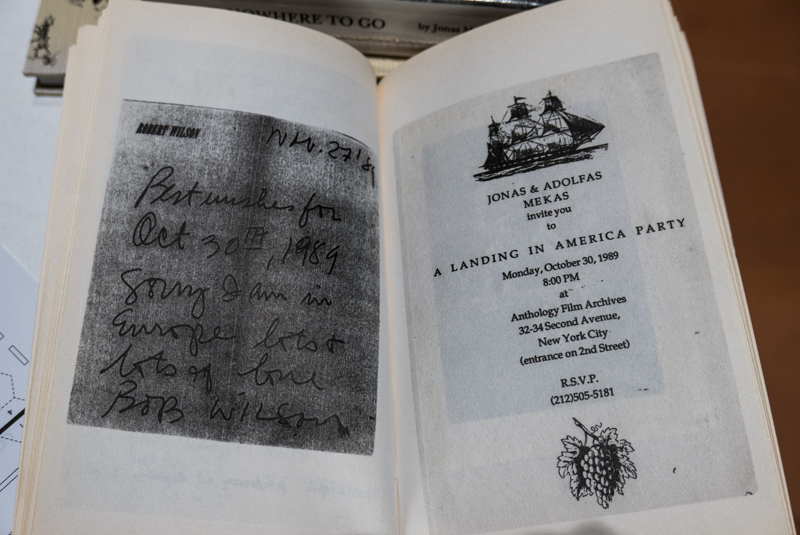 NOWHERE TO GO by Jonas
ROBERT WILSON
Nov. 27'89
Best wishes for
Oct 30TH, 1989
Sorry I am in
Europe lots &
lots of love
BOB WILSON
JONAS & ADOLFAS
MEKAS
invite you
to
A LANDING IN AMERICA PARTY
Monday, October 30, 1989
8:00 PM
at
Anthology Film Archives
32-34 Second Avenue,
New York City
(entrance on 2nd Street)
R.S.V.P.
(212)505-5181